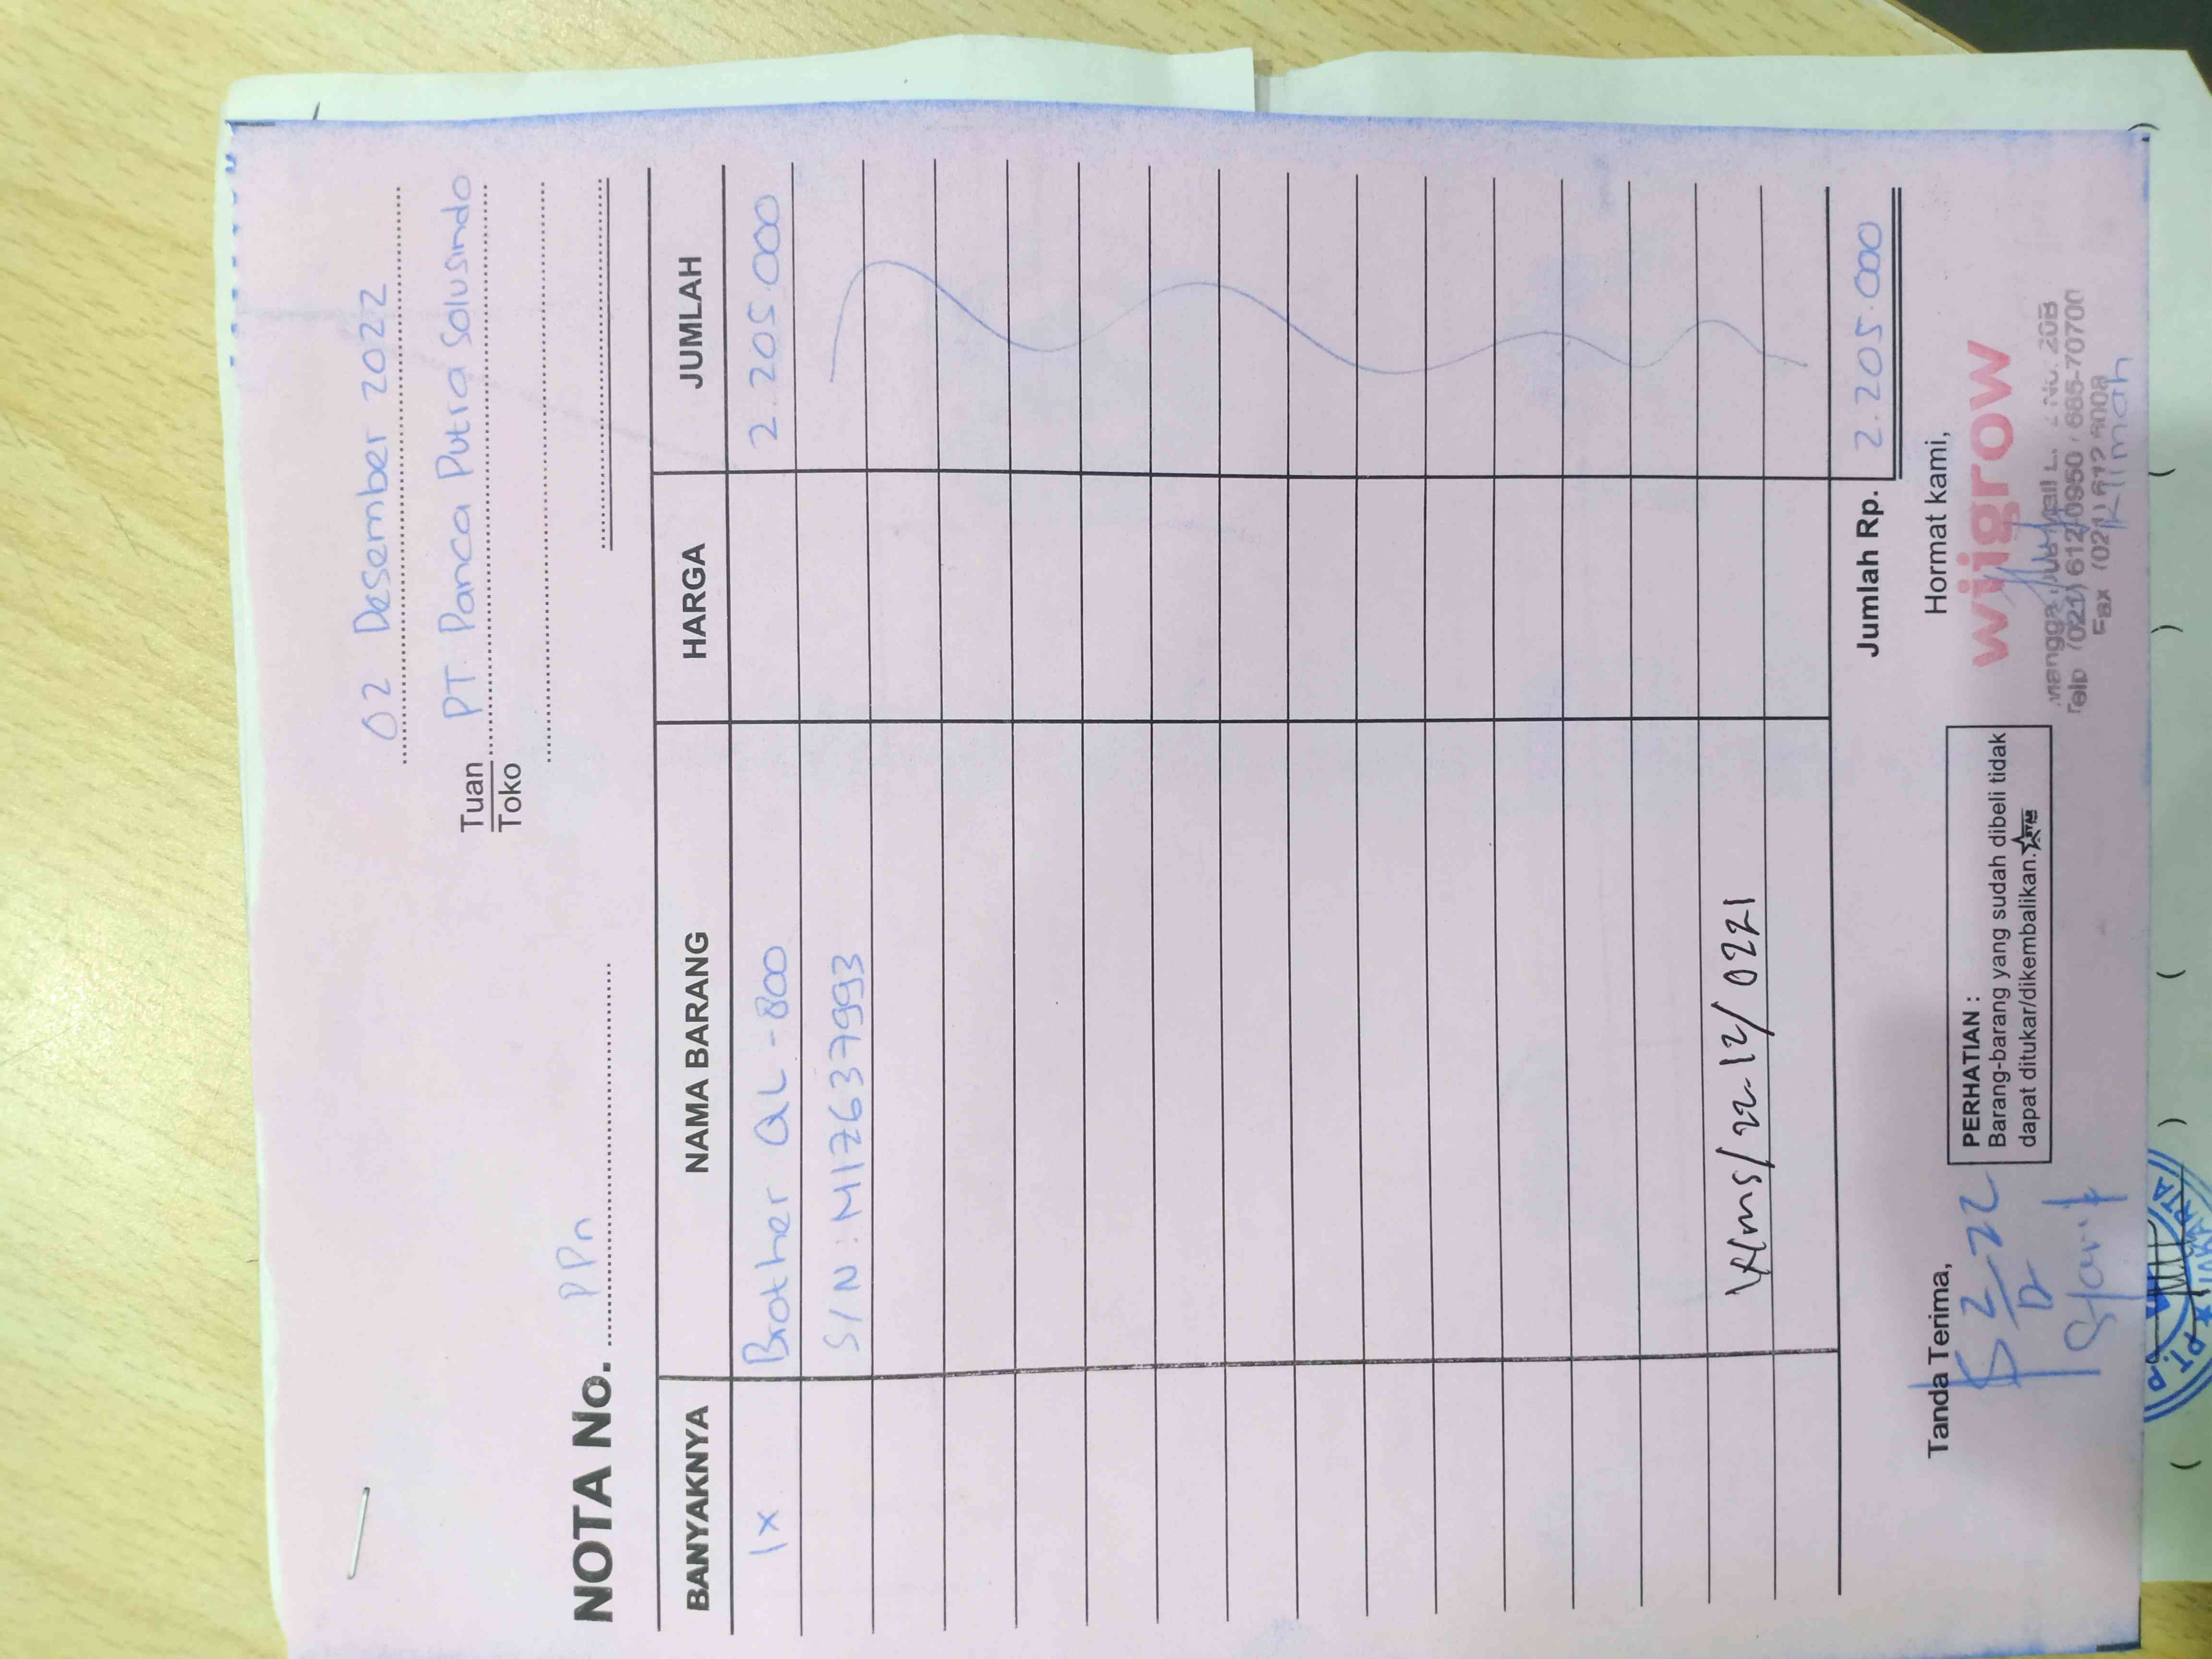 02 Desember 2022
Tuan PT. Panca Putra Solusindo
Toko
NOTA No. PPn
BANYAKNYA NAMA BARANG HARGA JUMLAH
1x Brother QL-800 2.205.000
S/N : M17637993
22-12/0221
Jumlah Rp. 2.205.000
Tanda Terima,
PERHATIAN :
Barang-barang yang sudah dibeli tidak
dapat ditukar/dikembalikan.
Hormat kami,
wiigrow
No. 20B
Telp (021) 6120950 / 685-70700
Fax (021) 612
PT.